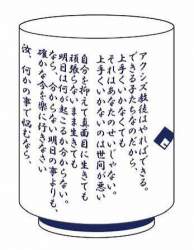 アクシズ教徒はやればできる。
できる子たちなのだから、
上手くいかなくても
それはあなたのせいじゃない。
上手くいかないのは世間が悪い
自分を抑えて真面目に生きても
頑張らないまま生きても
明日は何が起こるか分からない。
なら、分からない明日の事よりも、
確かな今を楽に行きなさい
汝、何かの事で悩むなら、